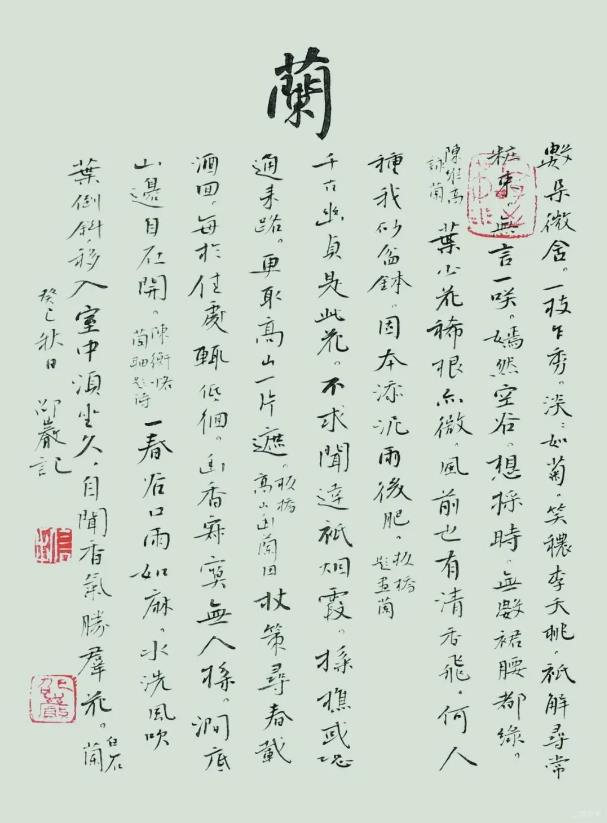 蘭
數朵微舍。一枝乍秀。淡〻如菊。笑穠李夭桃。祇解尋常
粧束。無言一咲。嫣然空谷。想採時。無數裙腰都綠。
陳維高
詠蘭
葉少花稀根亦微。風前也有清香飛。何人
種我砂盆鉢。因本添泥雨後肥。
板橋
題畫蘭
千古幽貞是此花。不求聞達祇烟霞。採樵或恐
通来路。更取高山一片遮。
板橋
高山幽蘭图
杖策尋春載
酒回。每於佳處輒低徊。幽香寂寞無人採。澗底
山邊自在開。
陳衡恪
蘭軸題诗
一春谷口雨如麻。水洗風吹
葉倒斜。移入室中須坐久。自聞香氣勝羣花。
白石
蘭
癸巳秋日 邵巖記